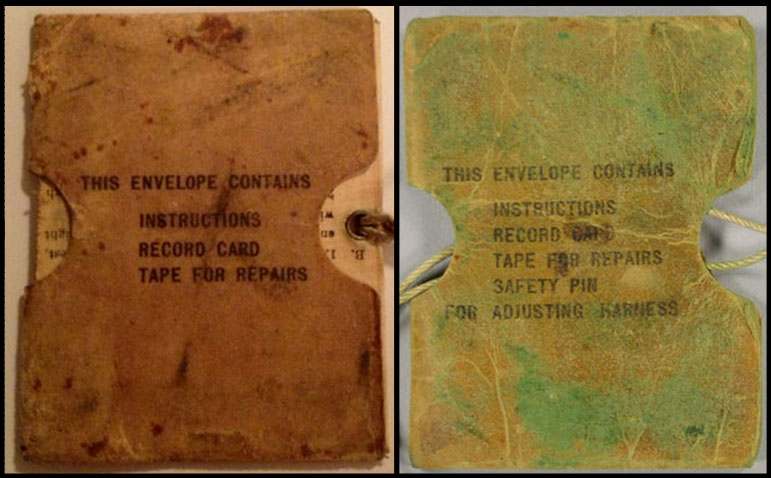 THIS ENVELOPE CONTAINS
INSTRUCTIONS
RECORD CARD
TAPE FOR REPAIRS
B. I.
THIS ENVELOPE CONTAINS
INSTRUCTIONS
RECORD CARD
TAPE FOR REPAIRS
SAFETY PIN
FOR ADJUSTING HARNESS